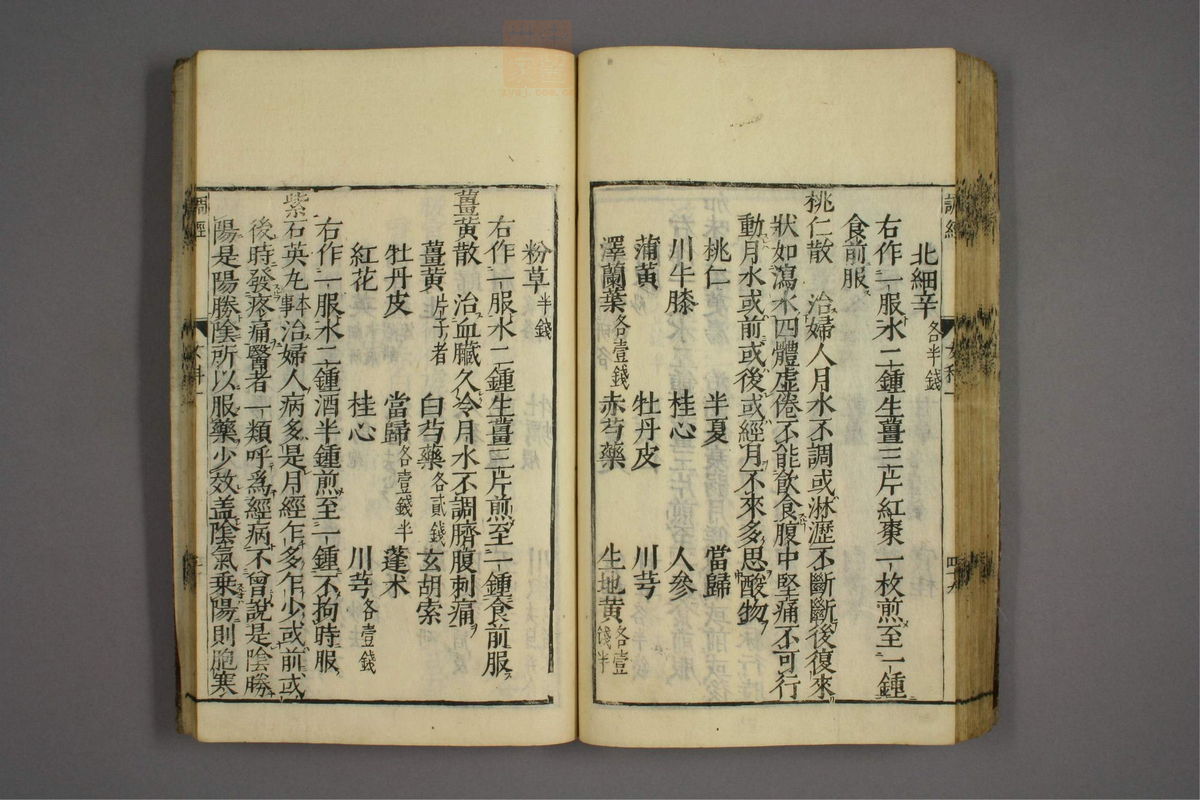 北細辛各半錢
右作一服水二鍾生薑三片紅棗一枚煎至一鍾
食前服
桃仁散 治婦人月水不調或淋瀝不斷斷後復來
狀如瀉水四體虛倦不能飲食腹中堅痛不可行
動月水或前或後或經月不來多思酸物
桃仁 半夏 當歸
川牛膝 桂心 人參
蒲黃 牡丹皮 川芎
澤蘭葉各壹錢 赤芍藥 生地黃各壹錢半
粉草半錢
右作一服水二鍾生薑三片煎至一鍾食前服
薑黃散 治血臟久冷月水不調臍腹刺痛
薑黃片子者 白芍藥各貳錢 玄胡索
牡丹皮 當歸各壹錢半 蓬术
紅花 桂心 川芎各壹錢
右作一服水二鍾酒半鍾煎至一鍾不拘時服
紫石英丸本事 治婦人病多是月經乍多乍少或前或
後時發疼痛醫者一類呼爲經病不曾說是陰勝
陽是陽勝陰所以服藥少效盖陰氣乗陽則胞寒